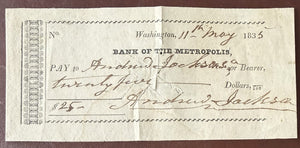 No. Washington, 11th May 1835
BANK OF THE METROPOLIS,
PAY to Andrew Jackson or Bearer,
twenty five
Dollars, 100
$25- Andrew Jackson